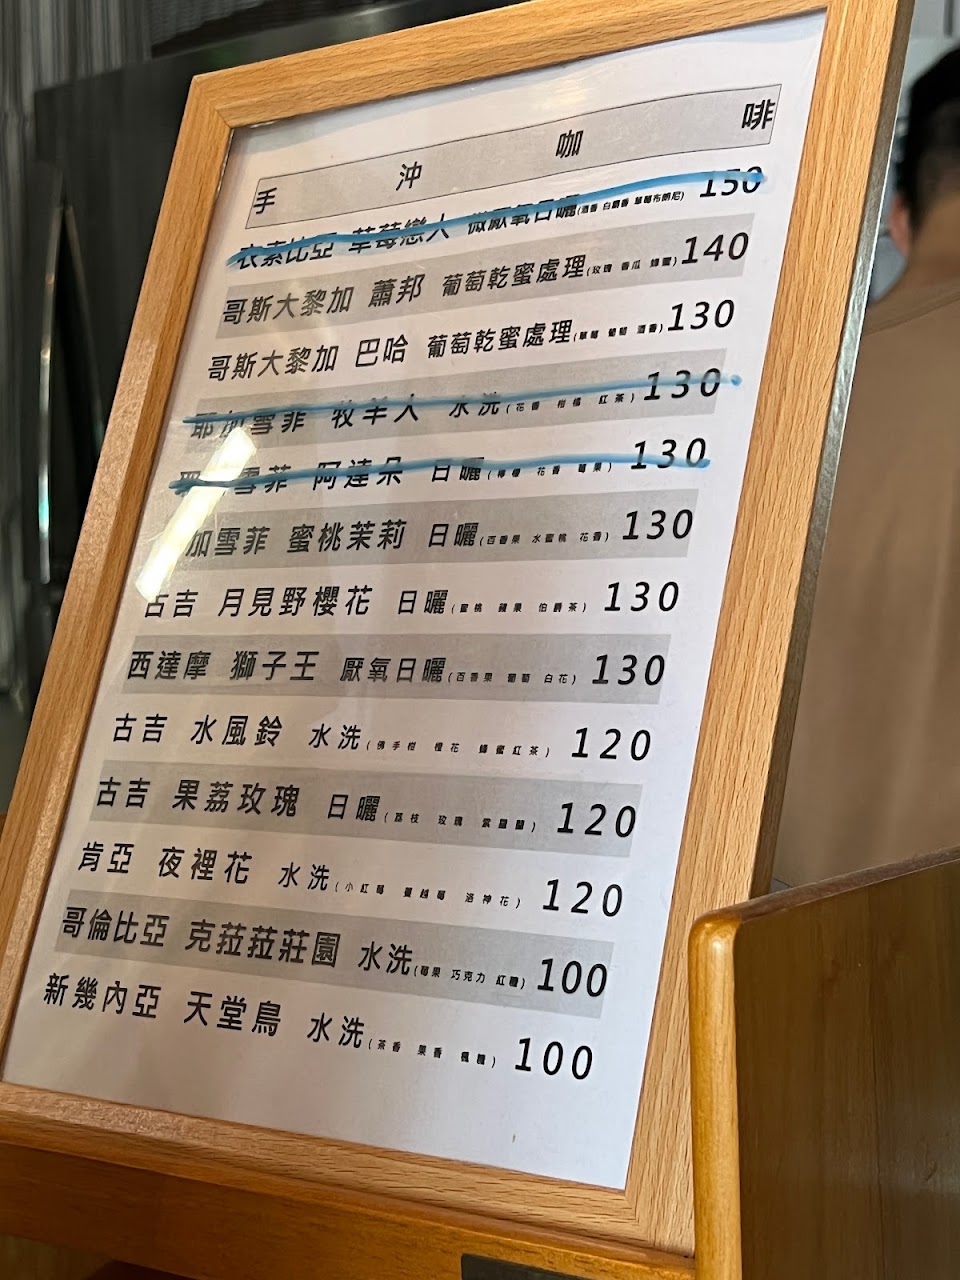 手沖咖啡
衣索比亞 草莓戀人 微厭氧日曬(酒香 白爵香 草莓布朗尼) 150
哥斯大黎加 蕭邦 葡萄乾蜜處理(玫瑰 香瓜 蜂蜜) 140
哥斯大黎加 巴哈 葡萄乾蜜處理(草莓 葡萄 酒香) 130
耶加雪菲 牧羊人 水洗(花香 柑橘 紅茶) 130
耶雪菲 阿達朵 日曬(檸檬 花香 莓果) 130
加雪菲 蜜桃茉莉 日曬(百香果 水蜜桃 花香) 130
古吉 月見野櫻花 日曬(蜜桃 蘋果 伯爵茶) 130
西達摩 獅子王 厭氧日曬(百香果 葡萄 白花) 130
古吉 水風鈴 水洗(佛手柑 橙花 蜂蜜紅茶) 120
古吉 果荔玫瑰 日曬(荔枝 玫瑰 紫羅蘭) 120
肯亞 夜裡花 水洗(小紅莓 蔓越莓 洛神花) 120
哥倫比亞 克菈菈莊園 水洗(莓果 巧克力 紅糖) 100
新幾內亞 天堂鳥 水洗(茶香 果香 楓糖) 100